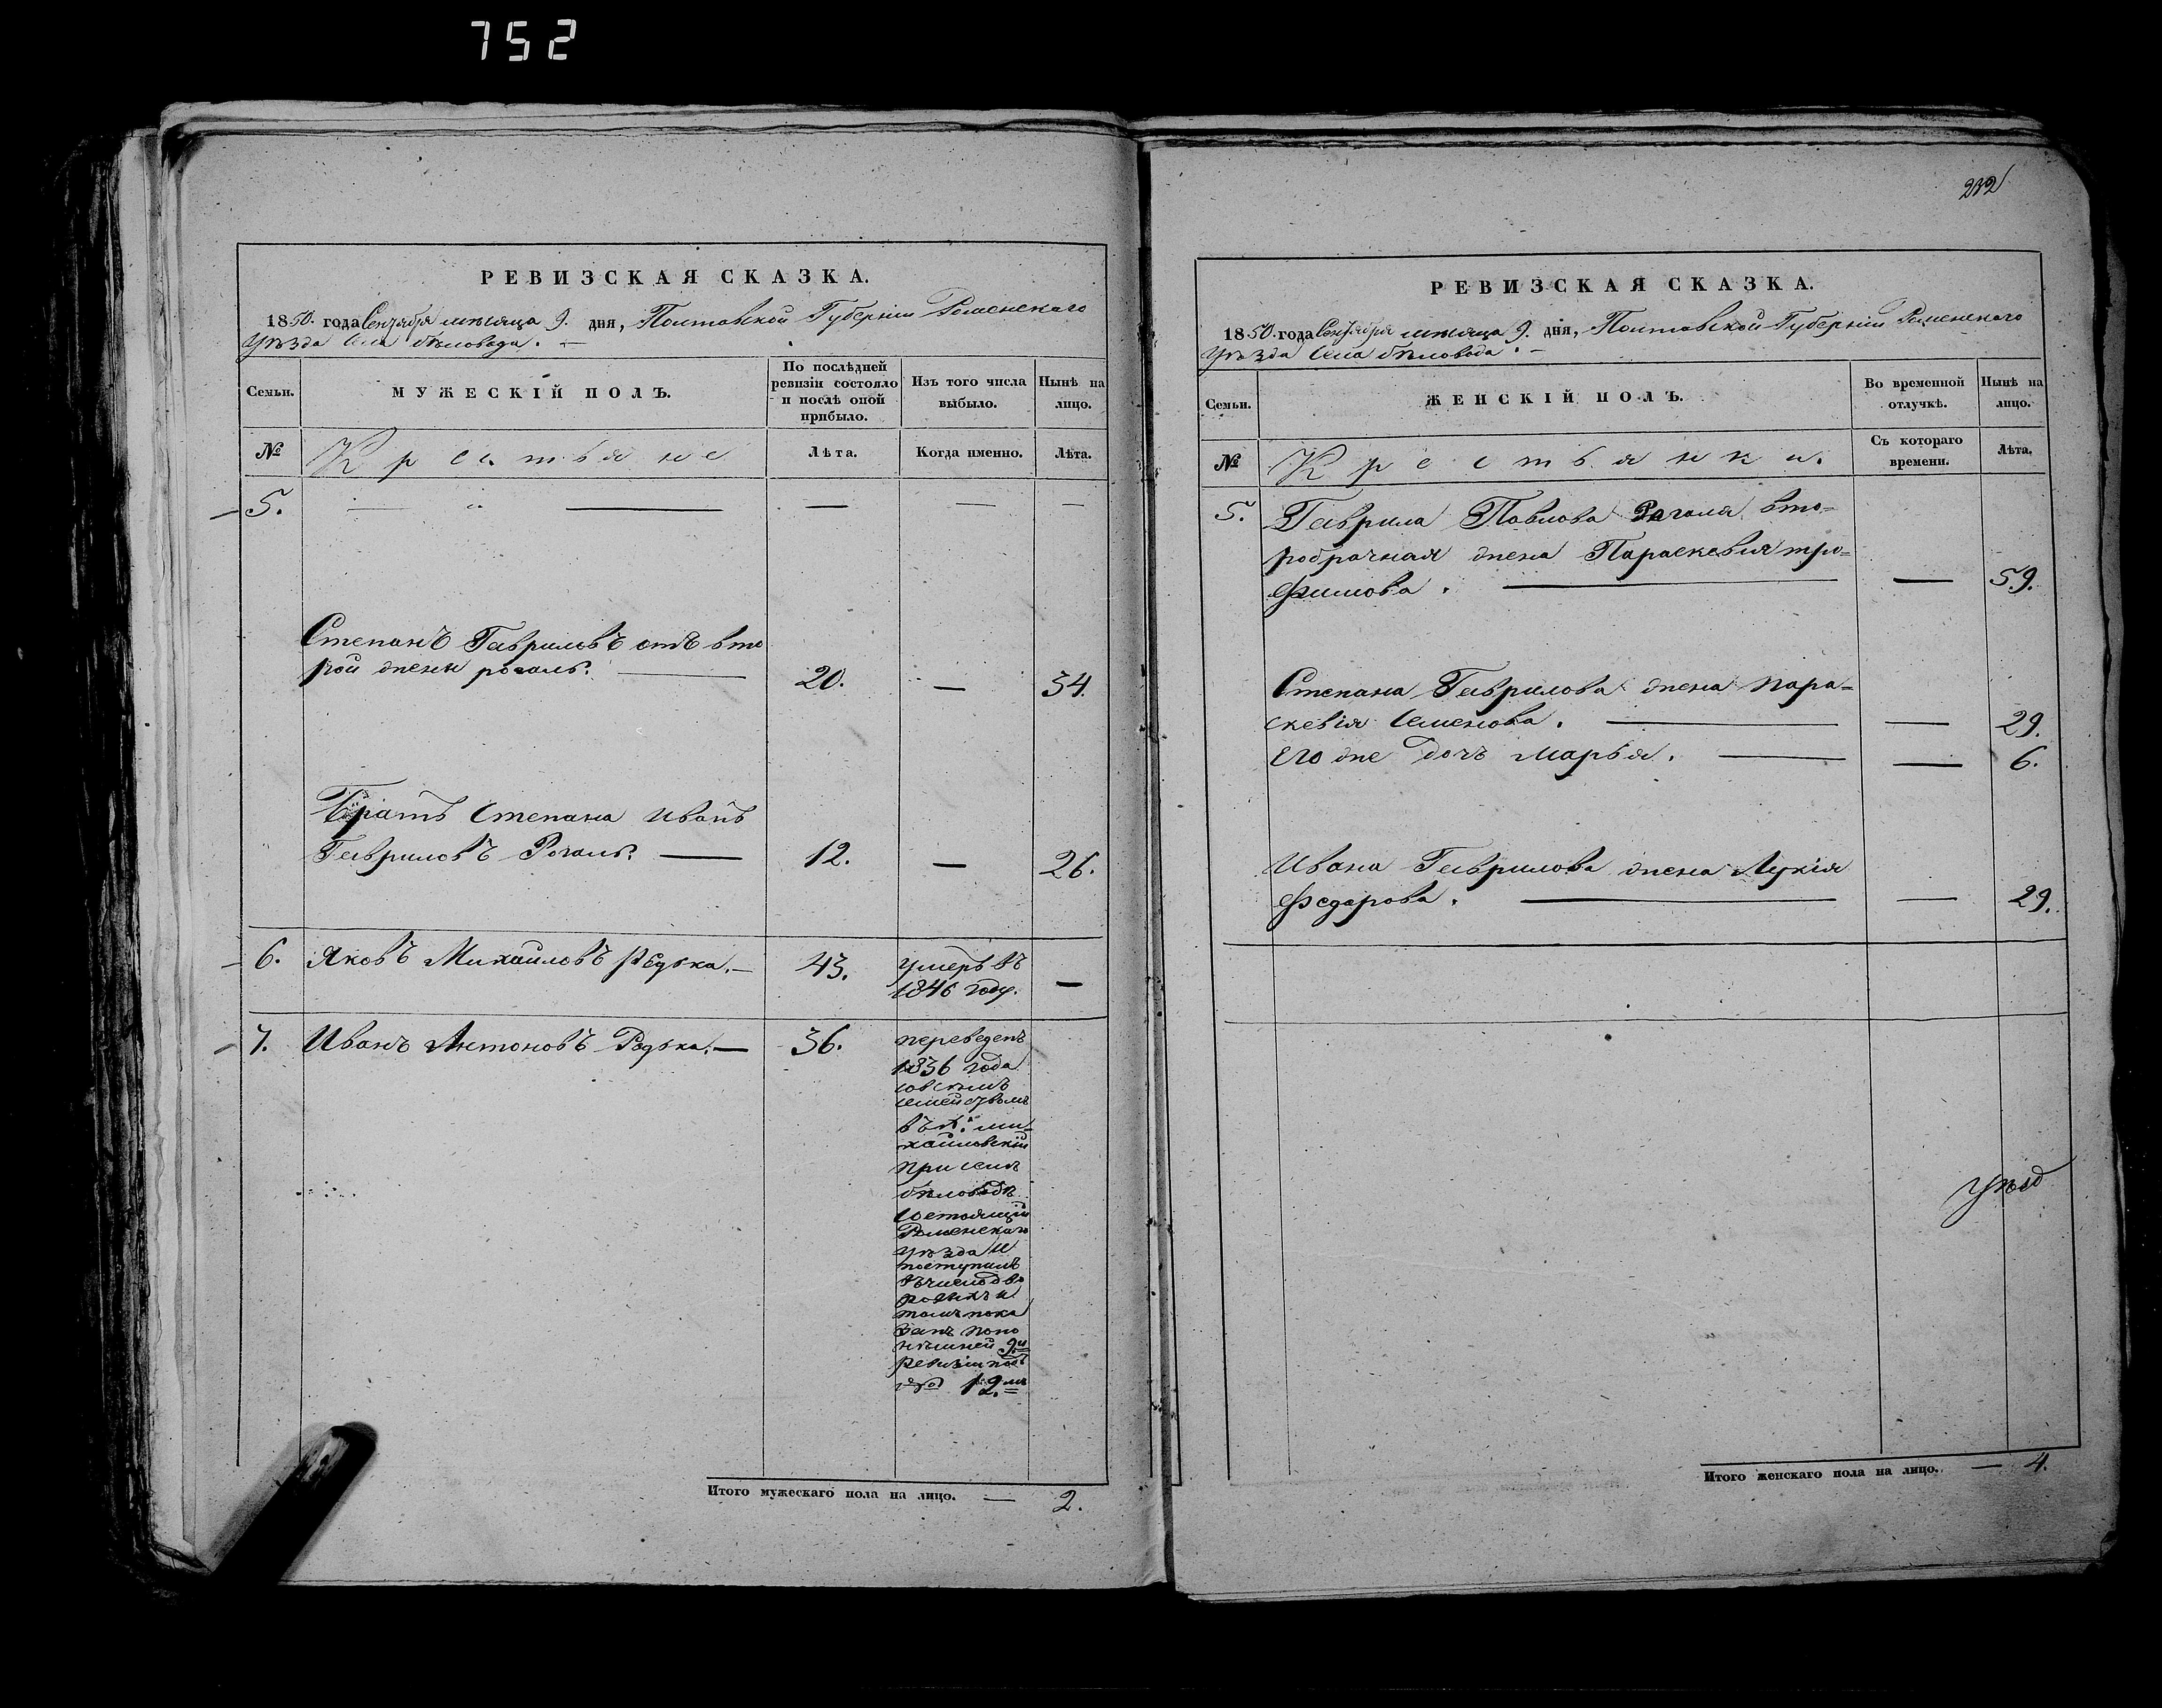 752
РЕВИЗСКАЯ СКАЗКА.
1850. года Сентября мѣсяца 9. дня, Полтавской Губерніи Роменскаго
Уѣзда Села бѣловода.
Семьи.
МУЖЕСКІЙ ПОЛЪ.
По послѣдней
ревизіи состояло
и послѣ оной
прибыло.
Изъ того числа
выбыло.
Нынѣ на
лицо.
№
Крестьяне
Лѣта.
Когда именно.
Лѣта.
5. — — — — —
Степанъ Гавриловъ отъ вто
рой жены рогаль. — 20. — 34.
Братъ Степана Иванъ
Гавриловъ Рогаль. — 12. — 26.
6. Яковъ Михайловъ рѣдька. — 43. умеръ въ
1846 году. —
7. Иванъ Антоновъ Рѣдька. — 36. переведенъ
1836 года
совсѣмъ
семействомъ
въ х: ми-
хайловскій
при селѣ
бѣловодѣ
состоящій
Роменскаго
уѣзда и
поступилъ
въ число дво
ровыхъ и
тамъ пока
занъ по ны
нѣшней 9й
ревизіи подъ
12.мъ
Итого мужескаго пола на лицо. — 2.
232
РЕВИЗСКАЯ СКАЗКА.
1850. года Сентября мѣсяца 9. дня, Полтавской Губерніи Роменскаго
Уѣзда Села бѣловода. —
Семьи.
ЖЕНСКІЙ ПОЛЪ.
Во временной
отлучкѣ.
Нынѣ на
лицо.
№
Крестьянки.
Съ котораго
времени.
Лѣта.
5. Гаврила Павлова Рогаля вто-
робрачная жена Параскевия тро-
фимова. — — 59.
Степана Гаврилова жена пара-
скевія Семенова. — — 29.
Его же дочь марья. — — 6.
Ивана Гаврилова жена Лукія
Федарова. — — 29.
Итого женскаго пола на лицо. — 4.